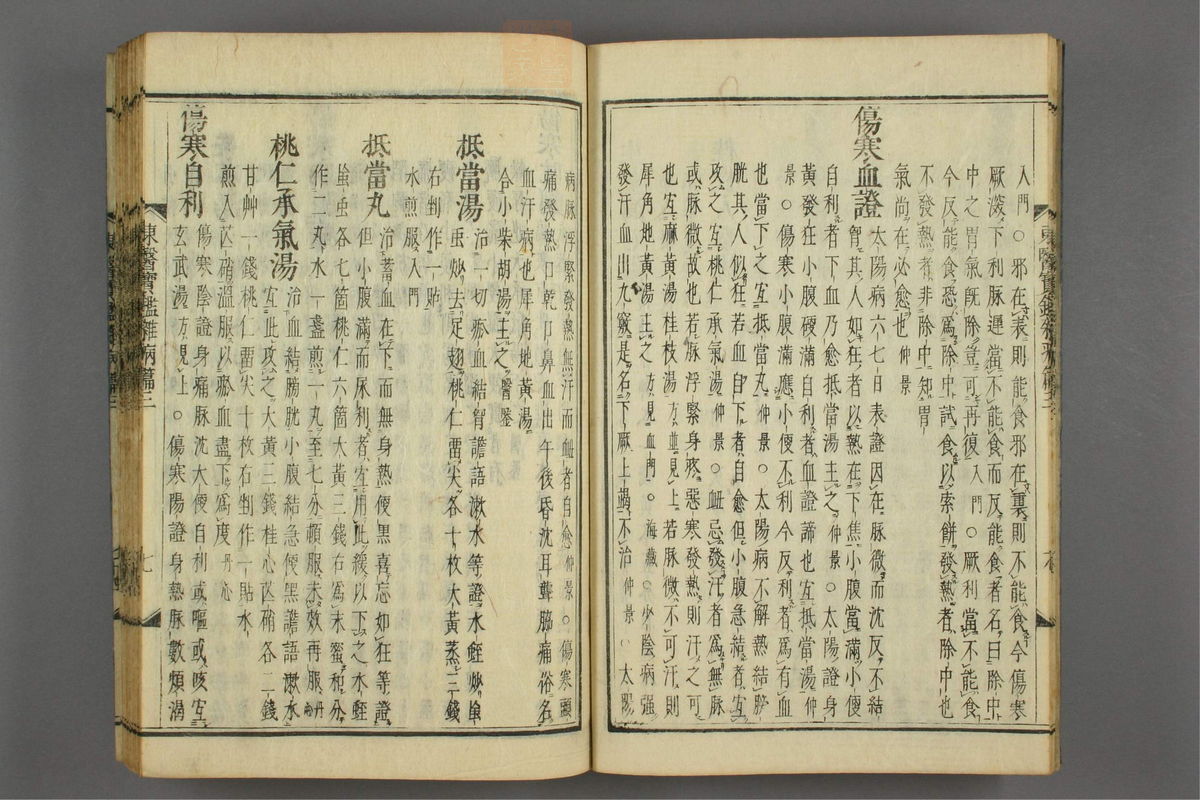 入門○邪在表則能食邪在裏則不能食今傷寒
厥深下利脉遲當不能食而反能食者名曰除中
中之胃氣旣除豈可再復入門○厥利當不能食
今反能食恐爲除中試食以索餅發熱者除中也
不發熱者非除中知胃
氣尚在必愈也仲景
傷寒血證
太陽病六七日表證因在脉微而沈反不結
胷其人如狂者以熱在下焦小腹當滿小便
自利者下血乃愈抵當湯主之仲景○太陽證身
黃發狂小腹硬滿小便自利者血證諦也宜抵當湯仲
景○傷寒小腹滿應小便不利今反利者爲有血
也當下之宜抵當丸仲景○太陽病不解熱結膀
胱其人似狂若血自下者自愈但小腹急結者宜
攻之宜桃仁承氣湯仲景○衄忌發汗者爲無脉
或脉微故也若脉浮緊身疼惡寒發熱則汗之可
也宜麻黃湯桂枝湯方並見上若脉微不可汗則
犀角地黃湯主之方見血門○海藏○少陰病强
發汗血出九竅是名下厥上竭不治仲景○太陽
病脉浮緊發熱無汗而衄者自愈仲景○傷寒頭
痛發熱口乾口鼻血出午後昏沈耳聾腦痛俗名
血汗病也犀角地黃湯
合小柴胡湯主之醫鑒
抵當湯
治一切瘀血結胷譫語漱水等證水蛭炒䖟
䖟炒去足翅桃仁雷尖各十枚大黃蒸三錢
右剉作一貼
水煎服入門
抵當丸
治蓄血在下而無身熱便黑喜忘如狂等證
但小腹滿而尿利者宜用此緩以下之水蛭
䖟虫各七箇桃仁六箇大黃三錢右爲末蜜和分
作二丸水一盞煎一丸至七分頓服未效再服丹心
桃仁承氣湯
治血結膀胱小腹結急便黑譫語漱水
宜此攻之大黃三錢桂心芒硝各二錢
甘艸一錢桃仁雷尖十枚右剉作一貼水
煎入芒硝溫服以瘀血盡下爲度丹心
傷寒自利
傷寒陰證身痛脉沈大便自利或嘔或咳宜
玄武湯方見上○傷寒陽證身熱脉數煩渴
東醫寶鑑雜病篇三